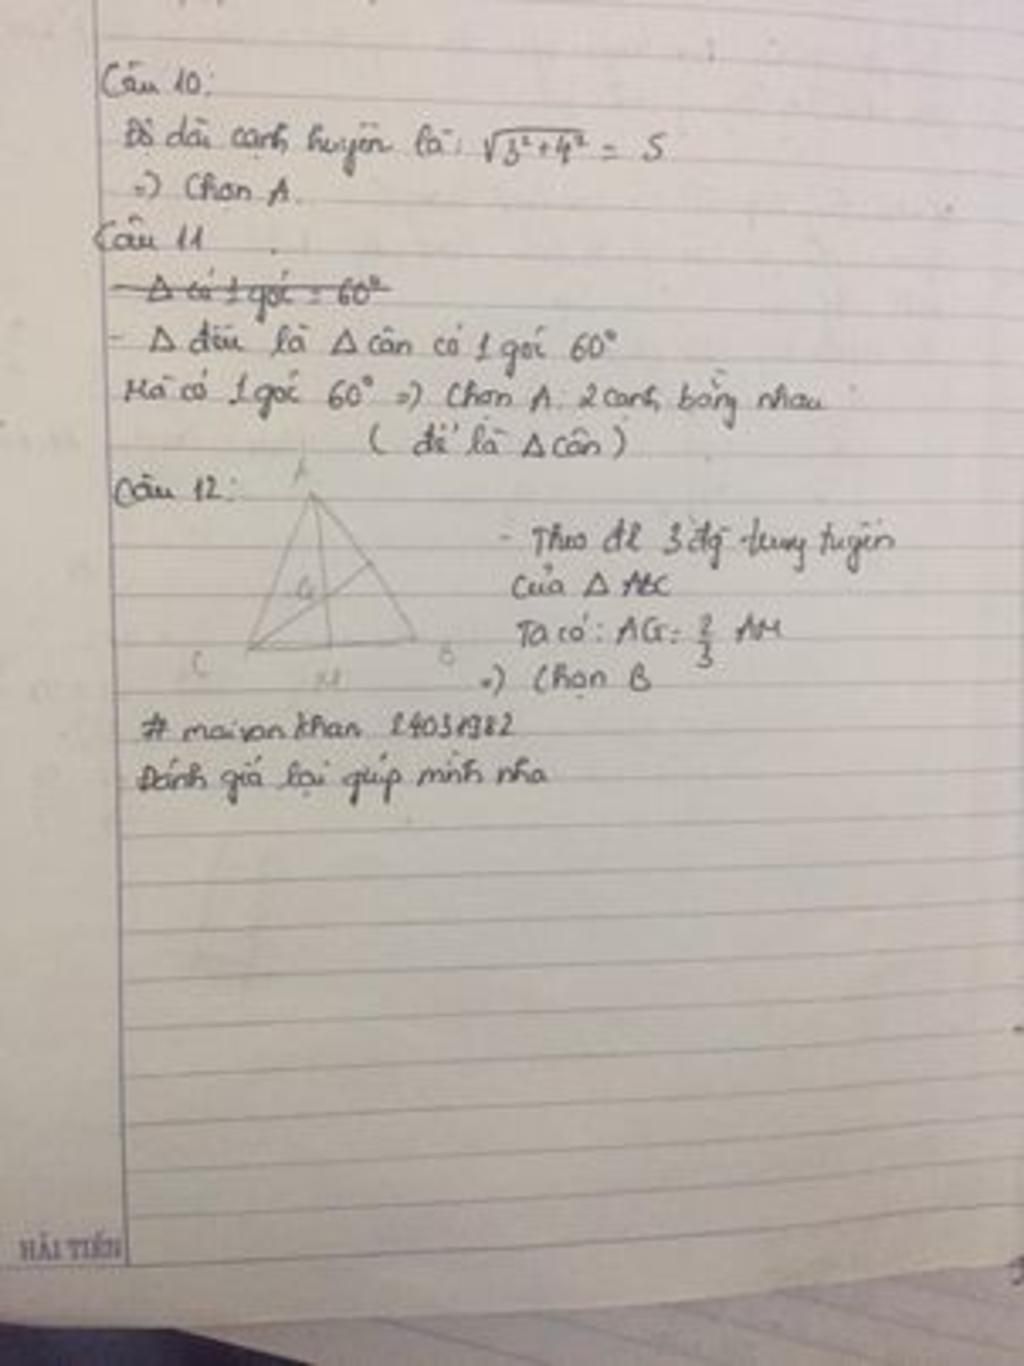 Câu 10:
Độ dài cạnh huyền là: √3²+4² = 5
=> Chọn A.
Câu 11
- Δ có 1 góc = 60°
- Δ đều là Δ cân có 1 góc 60°
Mà có 1 góc 60° => Chọn A. 2 cạnh bằng nhau
(để là Δ cân)
Câu 12:
A
G
C
B
M
- Theo đl 3 đg trung tuyến
của Δ ABC
Ta có: AG = 2/3 AM
=> Chọn B
# maivankhan 24031982
Đánh giá lại giúp mình nha
HẢI TIẾN